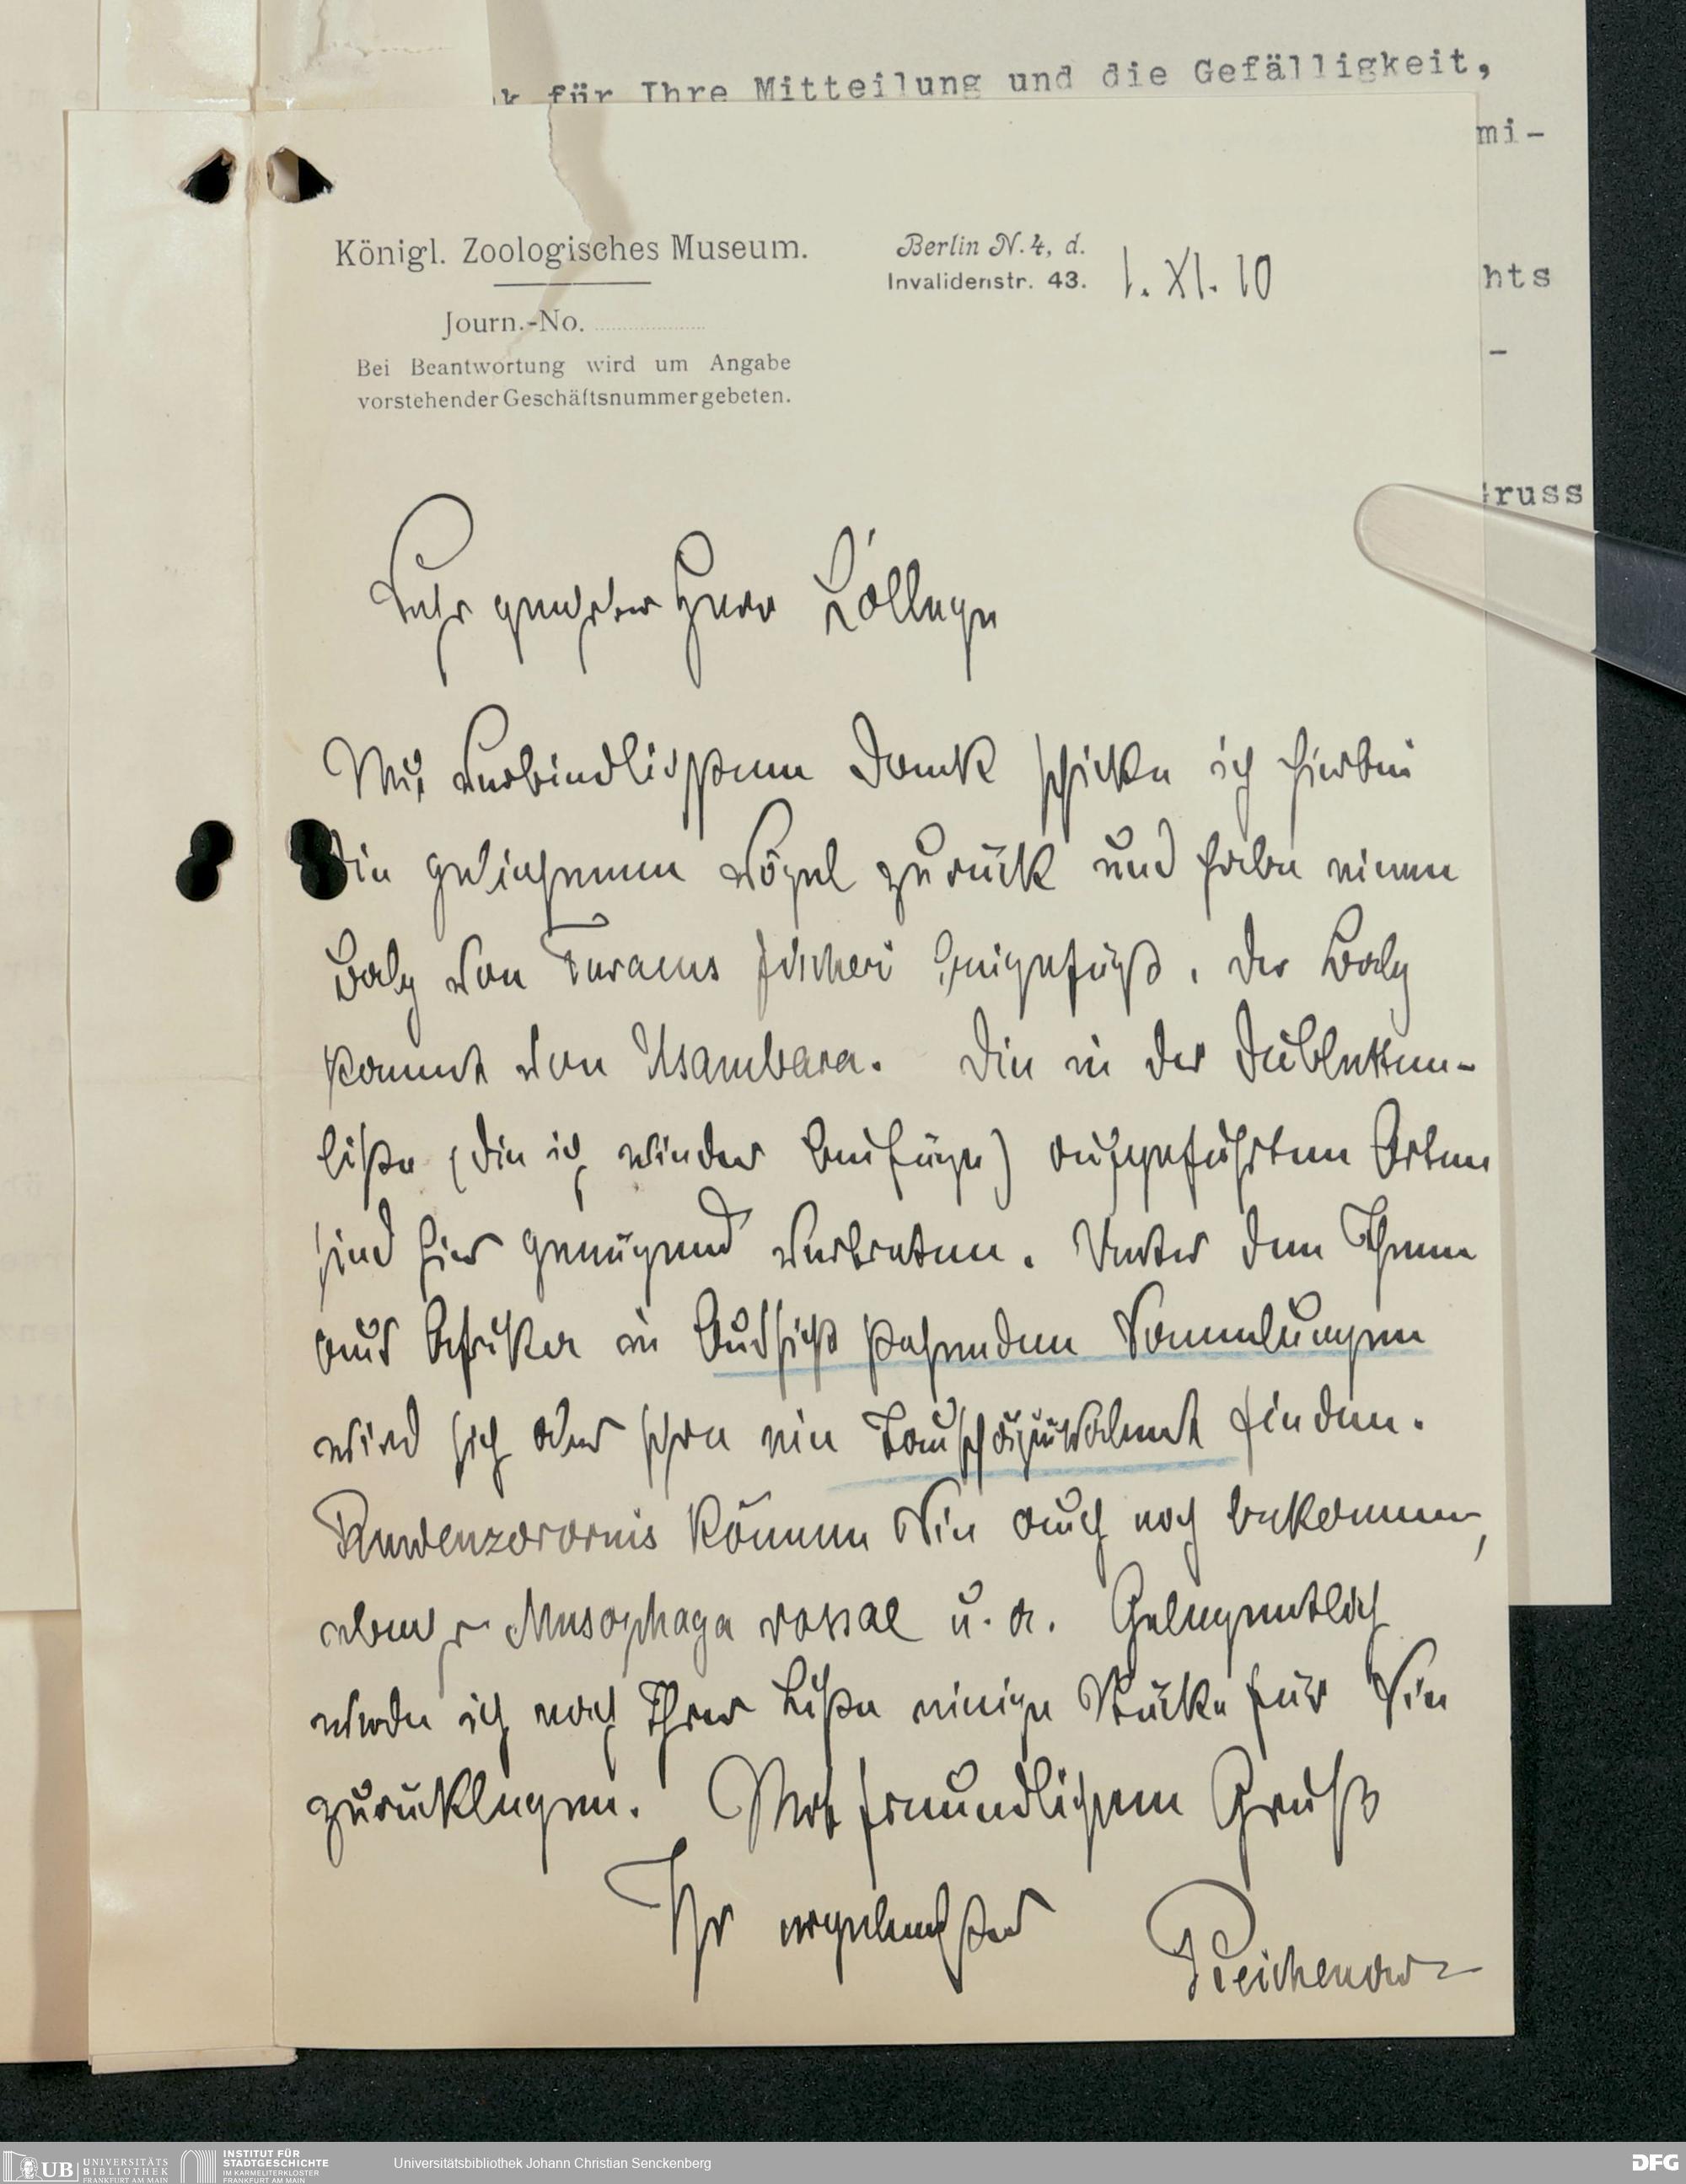 k für Ihre Mitteilung und die Gefälligkeit,
mi-
hts
-
Gruss
Königl. Zoologisches Museum.
Berlin N. 4, d.
Invalidenstr. 43.
1. XI. 10
Journ.-No.
Bei Beantwortung wird um Angabe
vorstehender Geschäftsnummer gebeten.
Sehr geehrter Herr Kollege
Mit verbindlichstem Dank schicke ich hierbei
die geliehenen Vögel zurück und habe einen
Balg von Turacus fischeri beigefügt. Der Balg
kommt von Usambara. Die in der Dubletten-
liste (die ich wieder beifüge) aufgeführten Arten
sind hier genügend vertreten. Unter den Ihnen
aus Afrika in Aussicht stehenden Sammlungen
wird sich aber schon ein Tauschäquivalent finden.
Ruwenzorornis können Sie auch noch bekommen,
ebenso Musophaga rossae u. a. Gelegentlich
werde ich nach Ihrer Liste einige Stücke für Sie
zurücklegen. Mit freundlichem Gruß
Ihr ergebenster
Reichenow
UB UNIVERSITÄTS
BIBLIOTHEK
FRANKFURT AM MAIN
INSTITUT FÜR
STADTGESCHICHTE
IM KARMELITERKLOSTER
FRANKFURT AM MAIN
Universitätsbibliothek Johann Christian Senckenberg
DFG